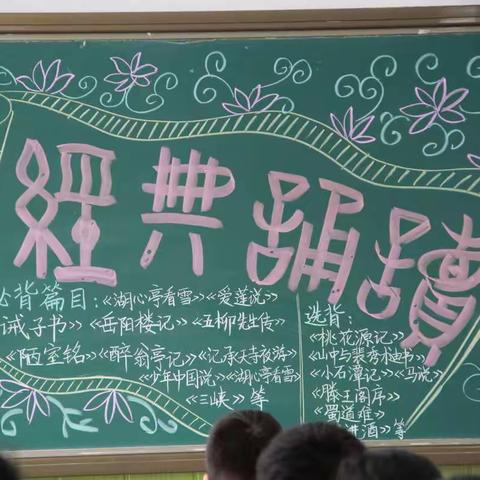 經典誦讀
必背篇目:《湖心亭看雪》《爱莲说》
诫子书》《岳阳楼记》《五柳先生传》
《陋室铭》《醉翁亭记》《记承天寺夜游》
《少年中国说》《湖心亭看雪》
《三峡》等
选背:
《桃花源记》
《山中与裴秀才迪书》
《小石潭记》《马说》
《滕王阁序》
《蜀道难》
进酒》等